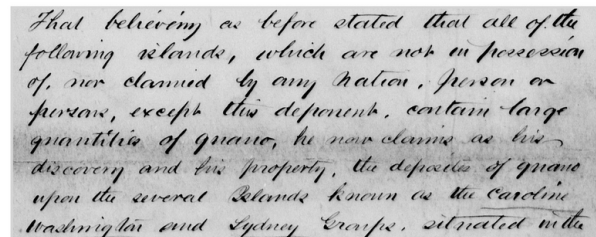 That believing as before stated that all of the
following islands, which are not in possession
of, nor claimed by any Nation, person or
persons, except this deponent, contain large
quantities of guano, he now claims as his
discovery and his property, the deposites of guano
upon the several Islands known as the Caroline
Washington and Sydney Groups. situated in the